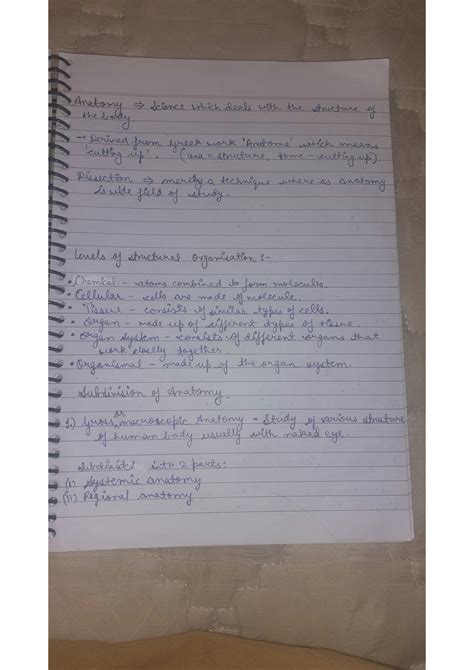 Anatomy ⇒ Science which deals with the structure of
the body
→ Derived from Greek work 'Anatome' which means
'cutting up'. (ana - structure, tome - cutting up).
Dissection ⇒ merely a technique where as anatomy
is wide field of study.
Levels of structural organisation :-
• Chemical - atoms combined to form molecules.
• Cellular - cells are made of molecule.
• Tissure - consists of similar types of cells.
• Organ - made up of different types of tissue.
• Organ system - consists of different organs that
work closely together.
• Organismal - made up of the organ system.
Subdivision of Anatomy.
or
1.) Gross macroscopic Anatomy - Study of various structure
of human body usually with naked eye.
Subdivided into 2 parts:
(i) Systemic anatomy
(ii) Regional anatomy